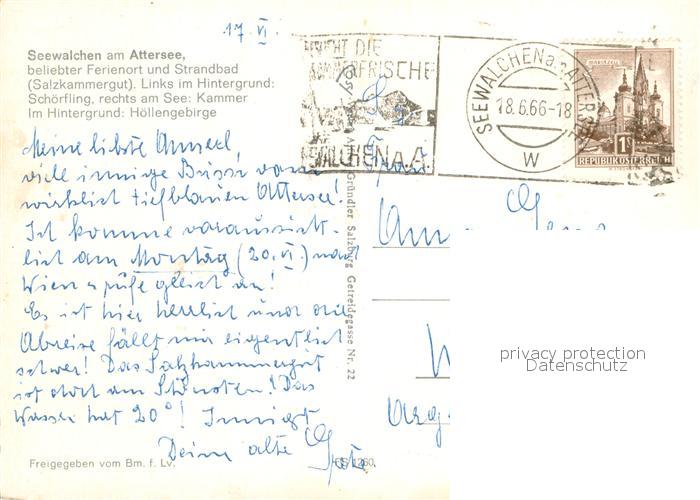 17. VI.
Seewalchen am Attersee,
beliebter Ferienort und Strandbad
(Salzkammergut). Links im Hintergrund:
Schörfling, rechts am See: Kammer
Im Hintergrund: Höllengebirge
DIE
SEEWALCHEN a. A.
SEEWALCHEN a. ATTERSEE
18.6.66-18
W
1S
REPUBLIK ÖSTERREICH
Meine liebste
viele innige Bussi vom
wirklich tiefblauen Attersee!
Ich komme voraussicht-
lich am Montag (20. VI.) nach
Wien u rufe gleich an!
Es ist hier herrlich und die
Abreise fällt mir eigentlich
schwer! Das Salzkammergut
ist doch am Schönsten! Das
Wasser hat 20°! Innigst
Deine alte
Gründler Salzburg Getreidegasse Nr. 22
privacy protection
Datenschutz
Freigegeben vom Bm. f. Lv.
1260